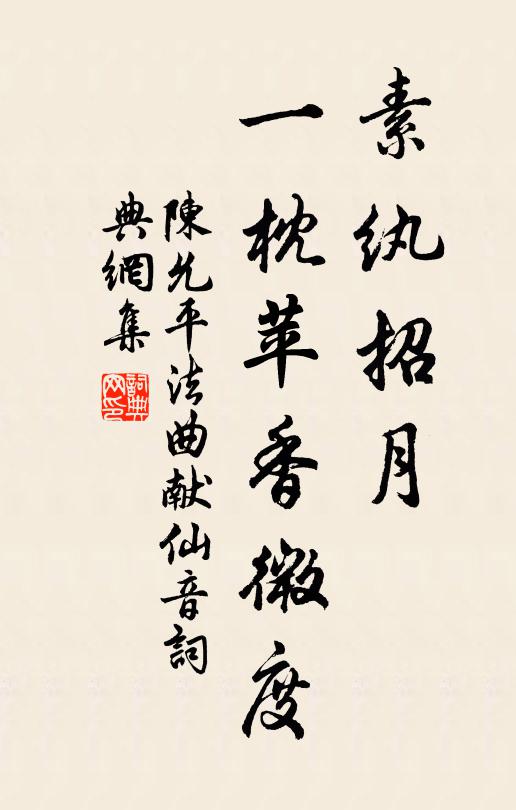 素纨招月
一枕苹香微度
陳允平法曲献仙音詞
典網集
詞典網印